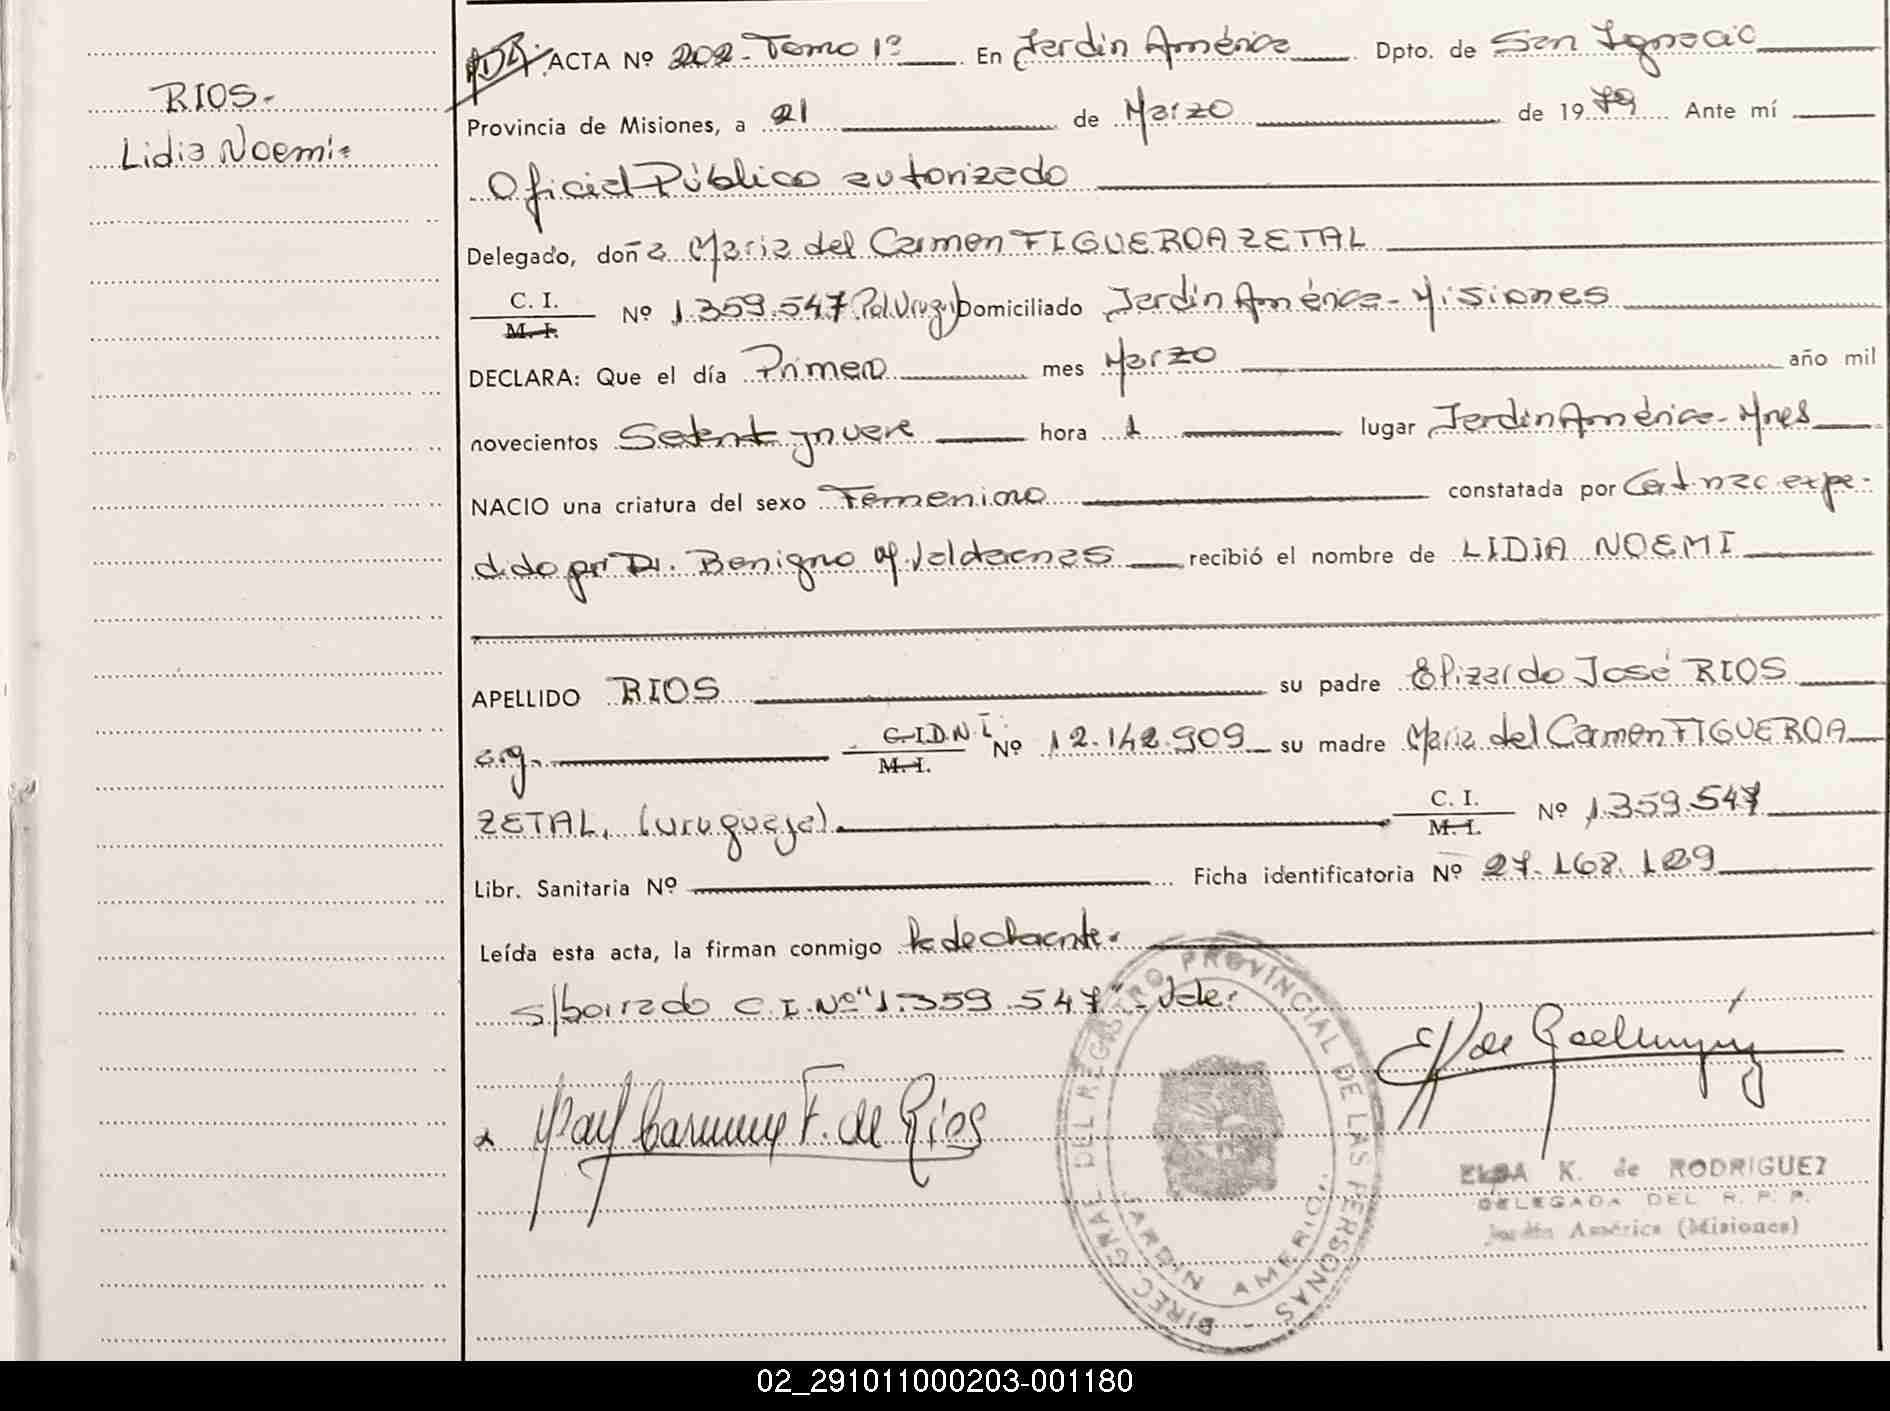 RIOS.
Lidia Noemi
ACTA Nº 202 - Tomo 1º. En Jardin América Dpto. de San Ignacio
Provincia de Misiones, a 21 de Marzo de 1979 Ante mí
Oficial Público autorizado
Delegado, doña Maria del Carmen FIGUEROA ZETAL
C. I. M. I. Nº 1.359.547 Pol. Urug.) Domiciliado Jardin América - Misiones
DECLARA: Que el día Primero mes Marzo año mil
novecientos Setent ynueve hora 1 lugar Jardin América - Mnes
NACIO una criatura del sexo Femenino constatada por Cert nac expe-
dido por Dr. Benigno Valdarenas recibió el nombre de LIDIA NOEMI
APELLIDO RIOS su padre Elizardo José RIOS
arg. C.I. D.N.I. M. I. Nº 12.142.909 su madre Maria del Carmen FIGUEROA
ZETAL, (uruguaya) C. I. M. I. Nº 1.359.547
Libr. Sanitaria Nº Ficha identificatoria Nº 27.168.129
Leída esta acta, la firman conmigo la declarante.
s/borrado C.I. Nº "1.359.547" - Vale:
Carmen F. de Rios
DIREC. GRAL. DEL REGISTRO PROVINCIAL DE LAS PERSONAS -
"JARDIN AMERICA"
ELBA K. de RODRIGUEZ
DELEGADA DEL R. P. P.
Jardín América (Misiones)
02_291011000203-001180